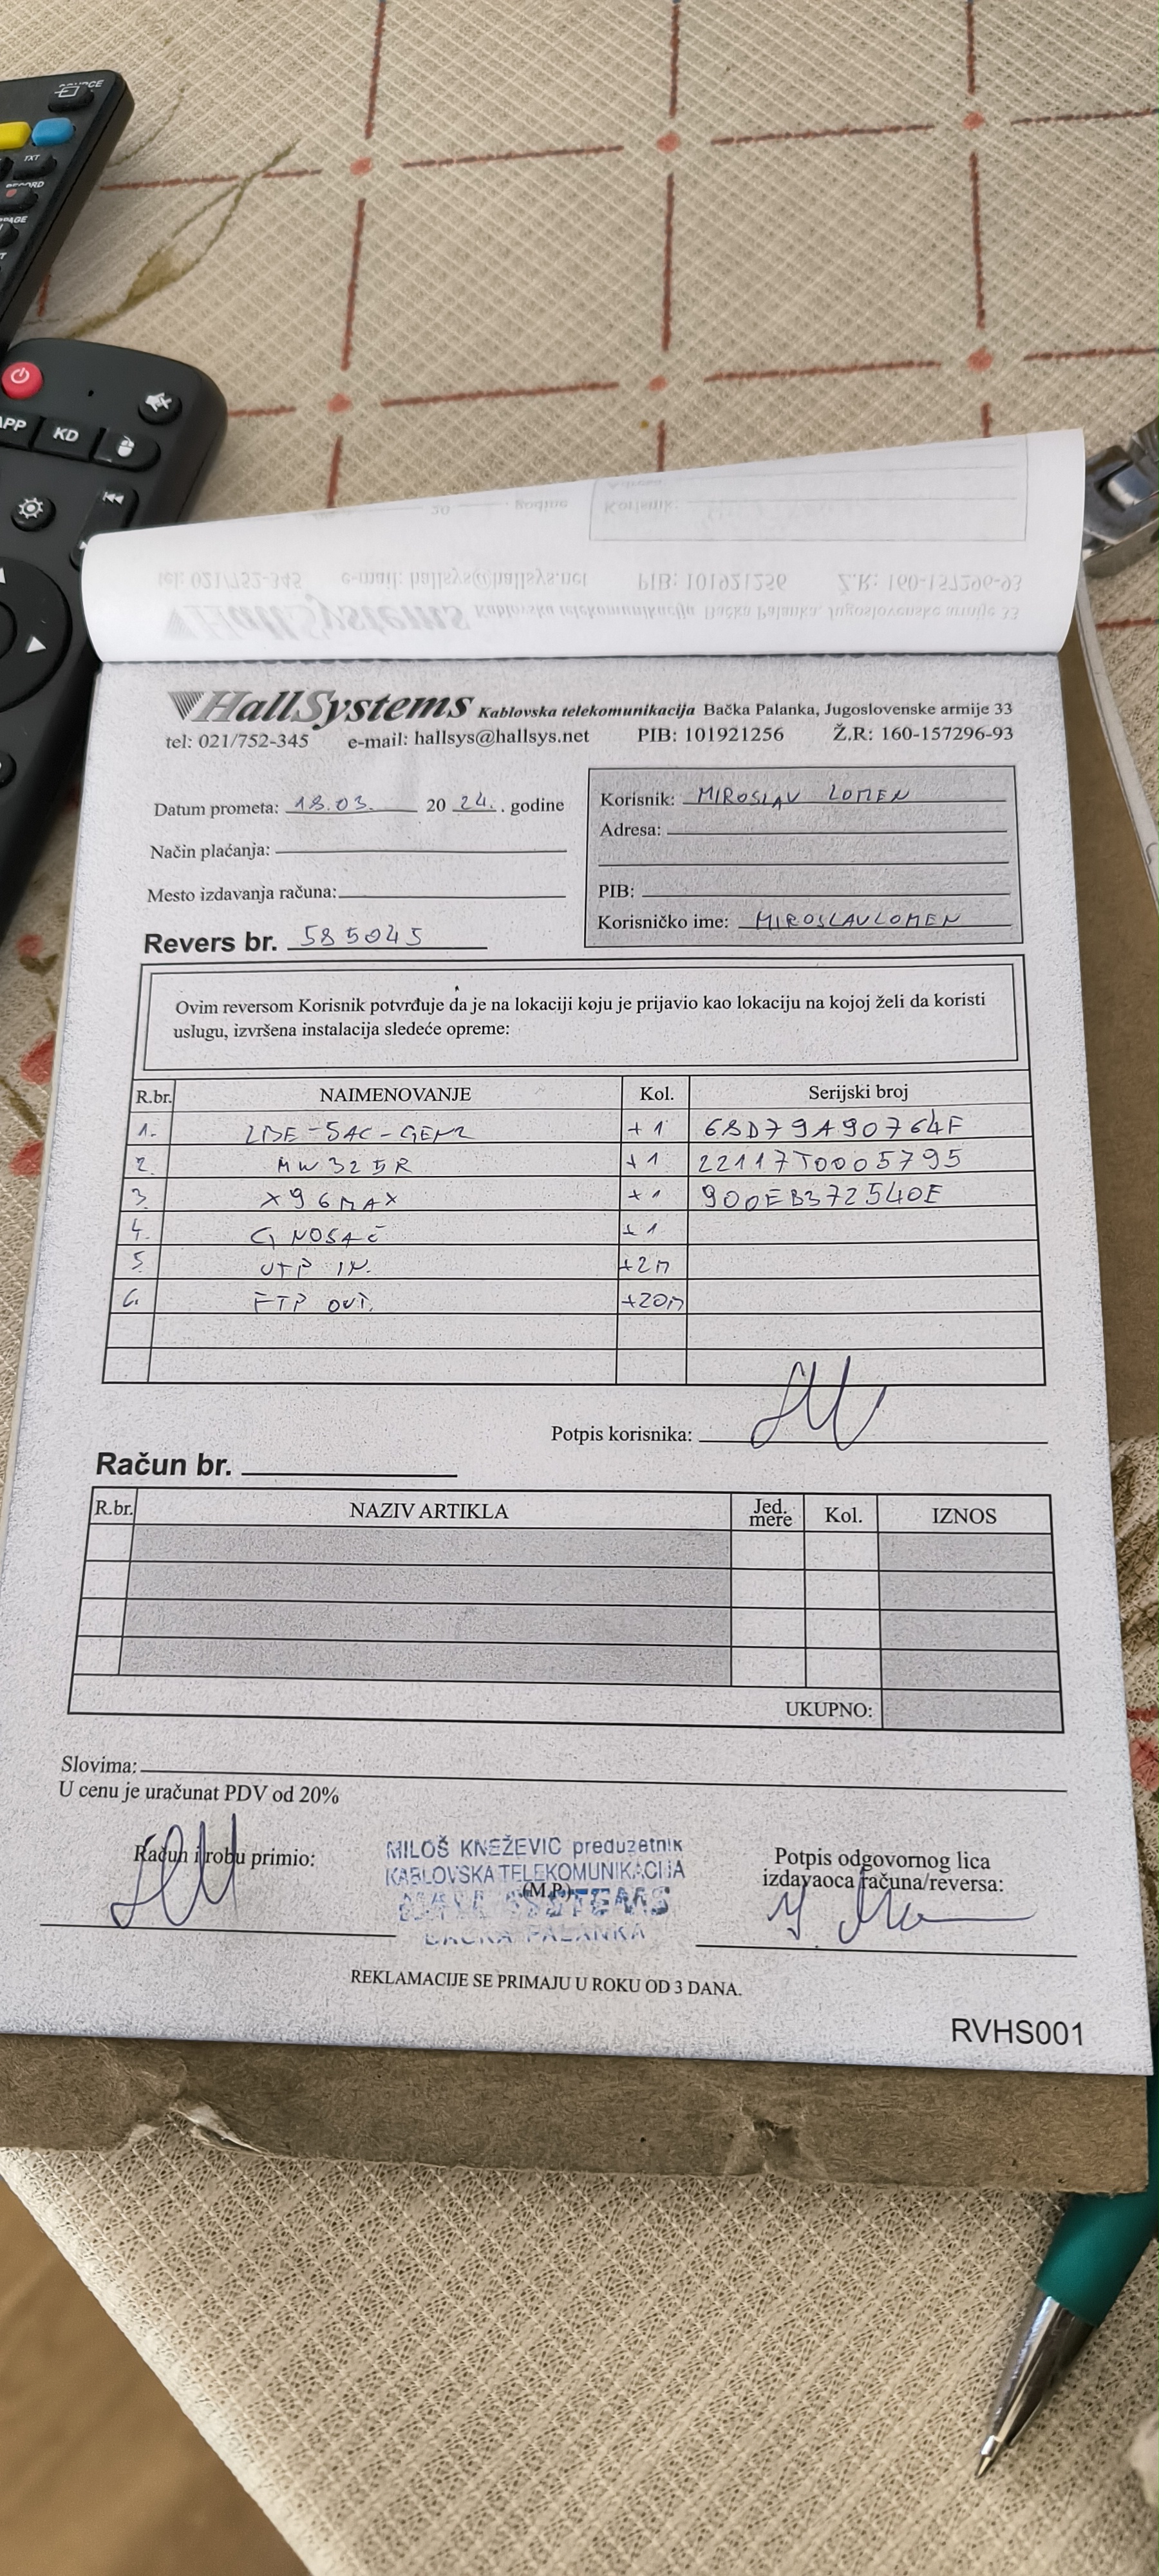 TXT
APP
KD
HallSystems Kablovska telekomunikacija Bačka Palanka, Jugoslovenske armije 33
tel: 021/752-345 e-mail: hallsys@hallsys.net PIB: 101921256 Ž.R: 160-157296-93
Datum prometa: 18.03. 20 24. godine
Način plaćanja:
Mesto izdavanja računa:
Revers br. 585045
Korisnik: MIROSLAV LOMEN
Adresa:
PIB:
Korisničko ime: MIROSLAVLOMEN
Ovim reversom Korisnik potvrđuje da je na lokaciji koju je prijavio kao lokaciju na kojoj želi da koristi
uslugu, izvršena instalacija sledeće opreme:
R.br. NAIMENOVANJE Kol. Serijski broj
1. LBE-5AC-GEN2 +1 68D79A90764F
2. MW325R +1 22117T0005795
3. X96MAX +1 900EB372540E
4. G NOSAČ +1
5. UTP IN. +2m
6. FTP OUT. +20m
Potpis korisnika:
Račun br.
R.br. NAZIV ARTIKLA Jed. mere Kol. IZNOS
UKUPNO:
Slovima:
U cenu je uračunat PDV od 20%
Račun i robu primio:
MILOŠ KNEŽEVIĆ preduzetnik
KABLOVSKA TELEKOMUNIKACIJA
(M.P.)
HALL SYSTEMS
BAČKA PALANKA
Potpis odgovornog lica
izdavaoca računa/reversa:
REKLAMACIJE SE PRIMAJU U ROKU OD 3 DANA.
RVHS001